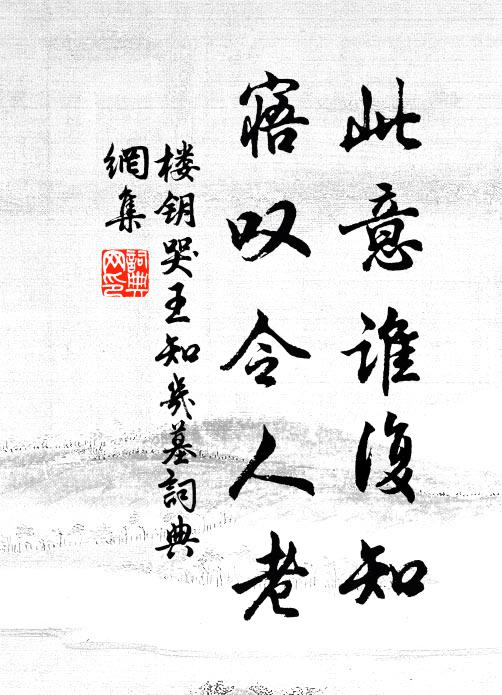 此意谁复知
寤叹令人老
楼钥哭王知几墓词典
網集
詞典
网印